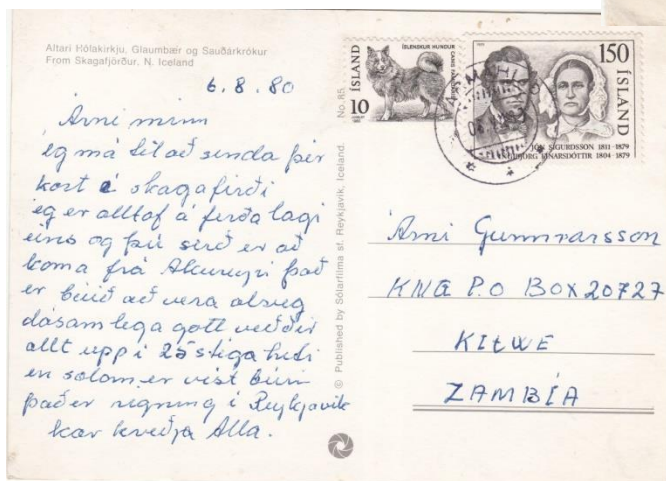 Altari Hólakirkju, Glaumbær og Sauðárkrókur
From Skagafjörður, N. Iceland
6.8.80
Árni minn
ég má til að senda þér
kort á skagafirði
ég er alltaf á ferða lagi
eins og þú sérð er að
koma frá Akureyri það
er búið að vera alveg
dásamlega gott veððir
allt upp i 25 stiga hiti
en solom er vist búin
það er regning i Reykjavik
kær kveðja Alla.
No. 85.
© Published by Sólarfilma sf. Reykjavik, Iceland.
ÍSLAND
10
ÍSLENSKUR HUNDUR
150
ÍSLAND
JÓN SIGURÐSSON 1811-1879
INGIBJÖRG EINARSDÓTTIR 1804-1879
Árni Gunnarsson
P.O BOX 20727
KITWE
ZAMBÍA